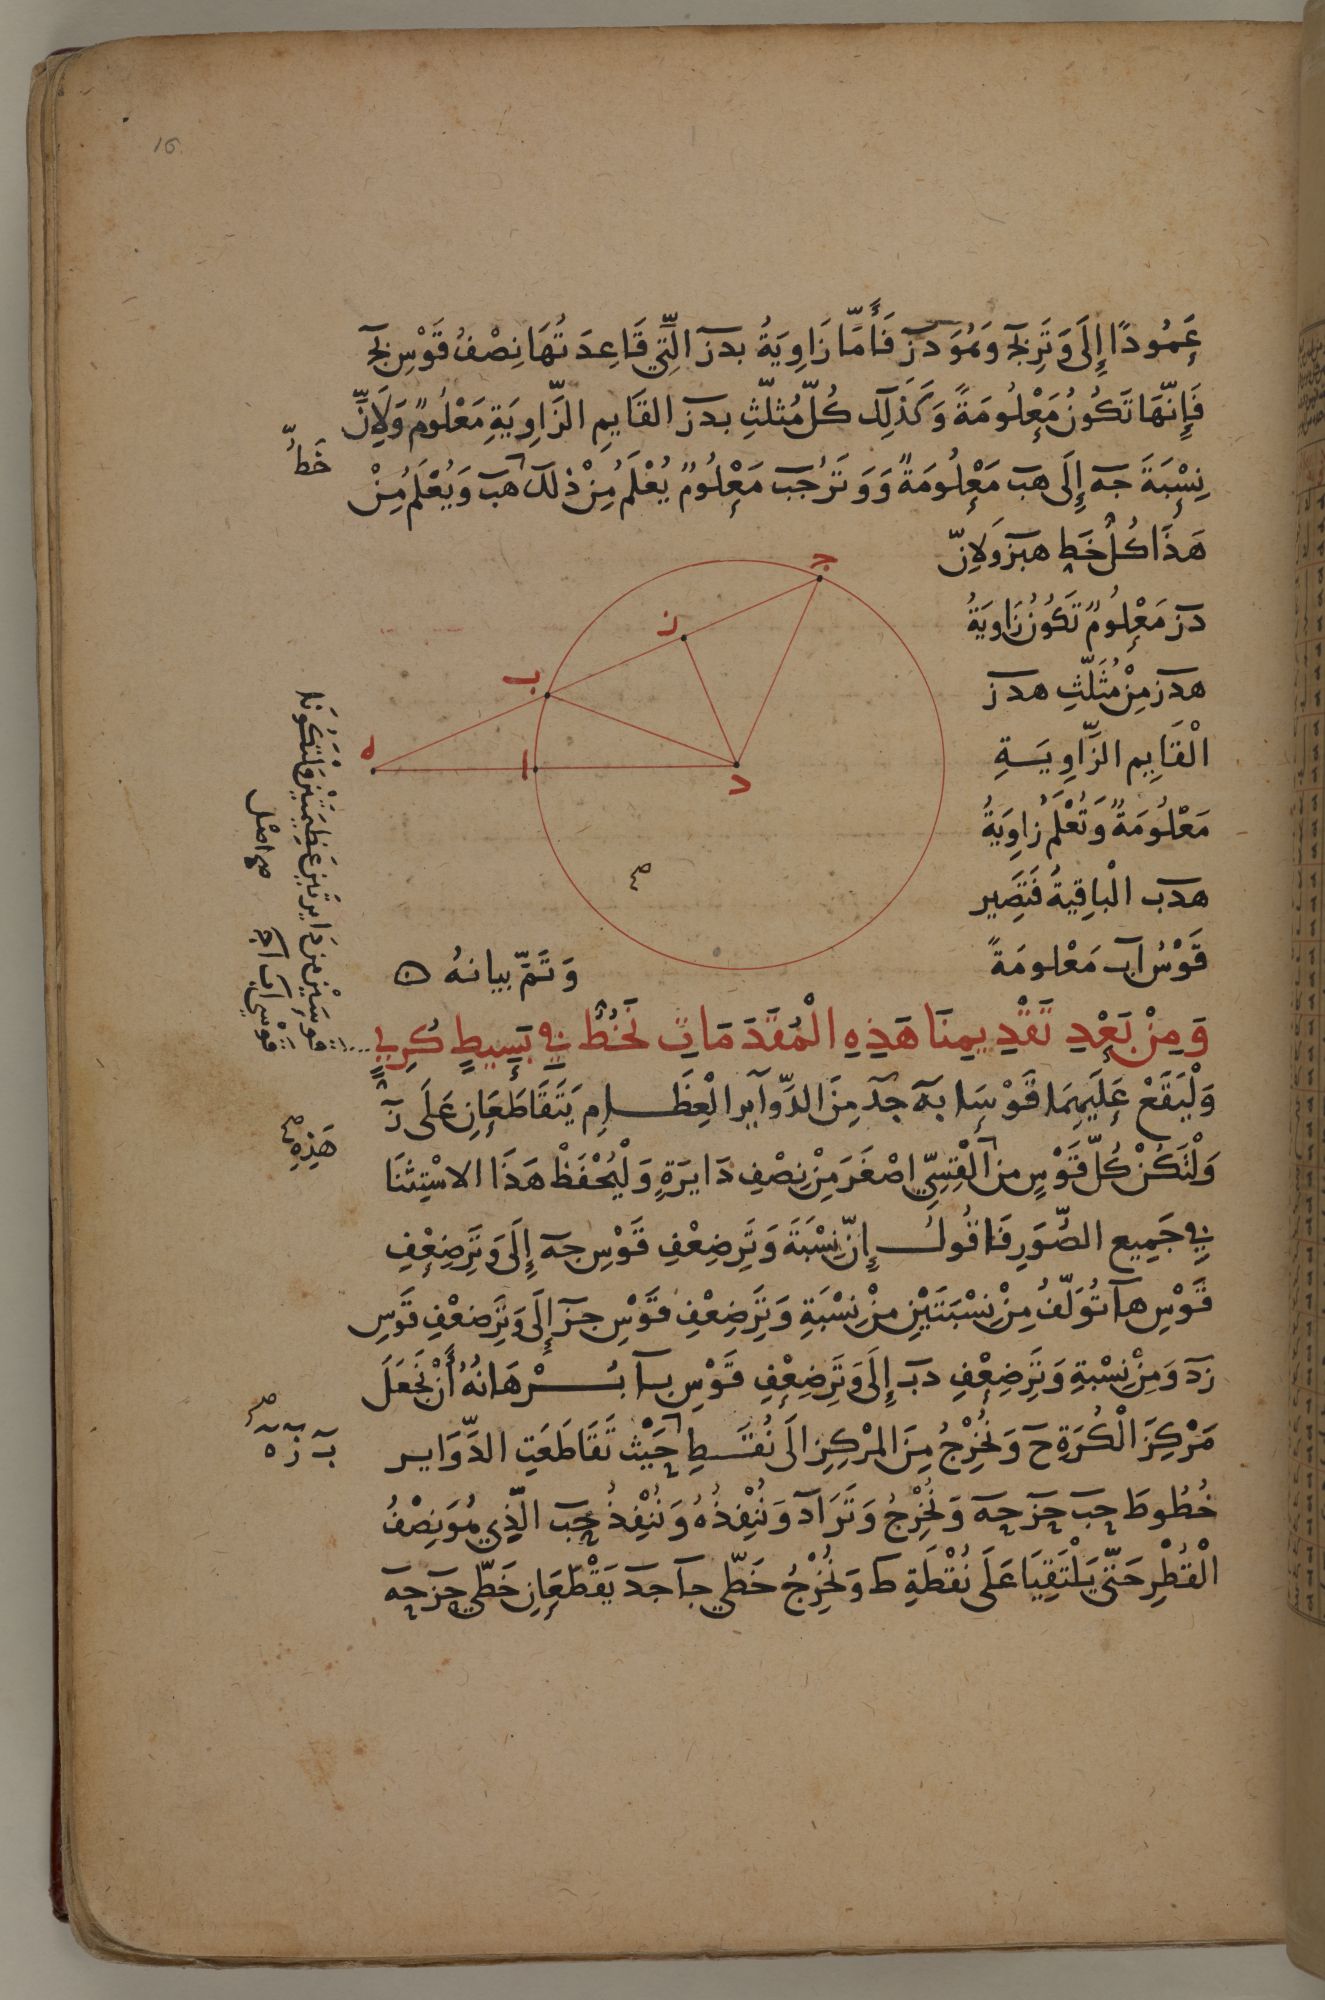 16
عَمُودًا إِلَى وَتَرِ بج وَهُوَ دز فَأَمَّا زَاوِيَةُ بدز الَّتِي قَاعِدَتُهَا نِصْفُ قَوْسِ بج
فَإِنَّهَا تَكُونُ مَعْلُومَةً وَكَذَلِك كُلّ مُثَلَّثِ بدز القَايِمِ الزَّاوِيَةِ مَعْلُومٌ وَلَاِنَّ
نِسْبَةَ جه إِلَى هب مَعْلُومَةٌ وَوَتَرُ جب مَعْلُومٌ يُعْلَمُ مِنْ ذلك هب وَيُعْلَمُ مِنْ
خَطُّ
هَذَا كُلُّ خَطِ هبز وَلاِنّ
دز مَعْلُومٌ تَكُونُ زَاوِيَةُ
هدز مِنْ مُثَلَّثِ هدز
الْقَايِمِ الزَّاوِيَةِ
مَعْلُومَةً وَتُعْلَمُ زَاوِيَةُ
هدب الْبَاقِيَةُ فَتَصِير
قَوْسُ اب مَعْلومَةً
وَتَمَّ بيانهُ ه
ج
ز
ب
ه
ا
د
وَمِنْ بَعْدِ تَقْدِيمِنَا هَذِهِ الْمُقَدَمَاتِ نَخُطُّ فِي بَسِيطٍ كُرِيٍّ
قوسَيْن مِنْ دايرتَين عَظِيمَتَيْن وَلْتَكُونَا
قوْسَي اب اج
صح اصْل
وَلْيَقَعْ عَلَيهِمَا قَوْسَا به جد مِنَ الدَّوآيرِ الْعِظَامِ يَتَقَاطَعَانِ عَلَى ز
وَلْتَكُنْ كُلّ قَوْسٍ من الْقِسِّي اصْغَرَ مِنْ نِصْفِ دَايرَةٍ وَلْيُحْفَظْ هَذَا الاسْتِثنَا
هَذِهِ
فِي جَمِيعِ الصُّوَرِ فَاقُولُ إِنَّ نِسْبَةَ وَتَرِ ضِعْفِ قَوْسِ جه إِلَى وَتَرِ ضِعْفِ
قَوْسِ ها تُولّفُ مِنْ نِسْبَتَيْنِ مِنْ نِسْبَةِ وَتَرِ ضِعْفِ قَوْسِ جز إِلَى وَتَرِ ضِعْفِ قَوْسِ
زد وَمِنْ نِسْبَةِ وَتَرِ ضِعْفِ دب إِلَى وَتَرِ ضِعْفِ قَوْسِ با بُرْهَانُهُ أَنْ نَجْعَلَ
مَرْكِزَ الْكُرَةِ ح وَنُخْرِجُ مِنَ المَرْكِزِ الَى نُقَطِ حَيْثُ تَقَاطَعَتِ الدَّوَايرِ
ب ز ه
خُطُوطَ حب حز حه وَنُخْرِجُ وَتَرَ اد وَنُنْفِذُهُ وَنُنْفِذُ حب الَّذِي هُوَ نِصْفُ
الْقُطْرِ حَتَّى يَلْتَقِيَا عَلَى نُقْطَةِ ط وَنُخْرِجُ خَطَّي جا جد يَقْطَعَانِ خَطَّي حز حه